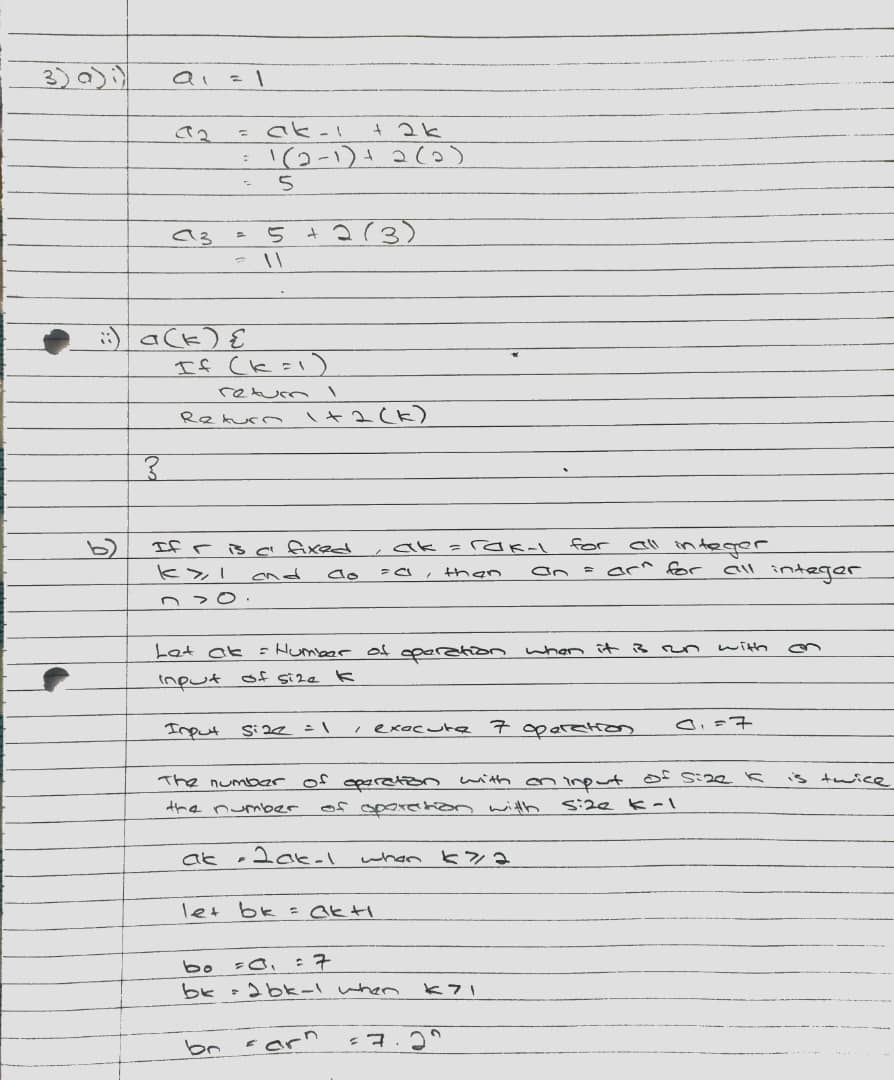 3) a) i) a1 = 1
a2 = ak-1 + 2k
= 1(2-1) + 2(2)
= 5
a3 = 5 + 2(3)
= 11
ii) a(k) {
If (k=1)
return 1
Return 1+2(k)
}
b) If r is a fixed, ak = rak-1 for all integer
k ≥ 1 and a0 = a, then an = ar^n for all integer
n > 0.
Let ak = Number of operation when it is run with an
input of size k
Input size = 1, execute 7 operation a1 = 7
The number of operation with an input of size k is twice
the number of operation with size k-1
ak = 2ak-1 when k ≥ 2
let bk = ak+1
b0 = a1 = 7
bk = 2bk-1 when k > 1
bn = ar^n = 7.2^n